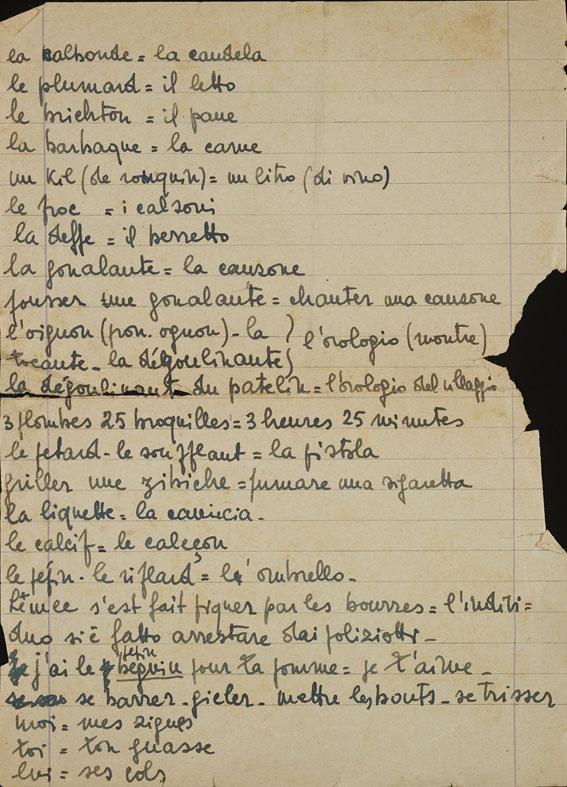 la calbonde = la candela
le plumard = il letto
le brichton = il pane
la barbaque = la carne
un Kil (de rouquin) = un litro (di vino)
le froc = i calzoni
la deffe = il berretto
la goualante = la canzone
pousser une goualante = chanter una canzone
l'oignon (pron. ognon) - la } l'orologio (montre)
tocante - la dégoulinante)
la dégoulinant du patelin = l'orologio del villaggio
3 plombes 25 broquilles = 3 heures 25 minutes
le petard - le soufflant = la pistola
griller une zibiche = fumare una sigaretta
la liquette = la camicia -
le calcif = le caleçon
le pépin - le riflard = l' ombrello -
s'est fait piquer par les bourres = l'indivi =
duo si è fatto arrestare dai poliziotti -
j'ai le pépin béguin pour ta pomme = je t'aime -
se barrer - gicler - mettre les bouts - se trisser
moi = mes zigues
toi = ton guasse
lui = ses cols